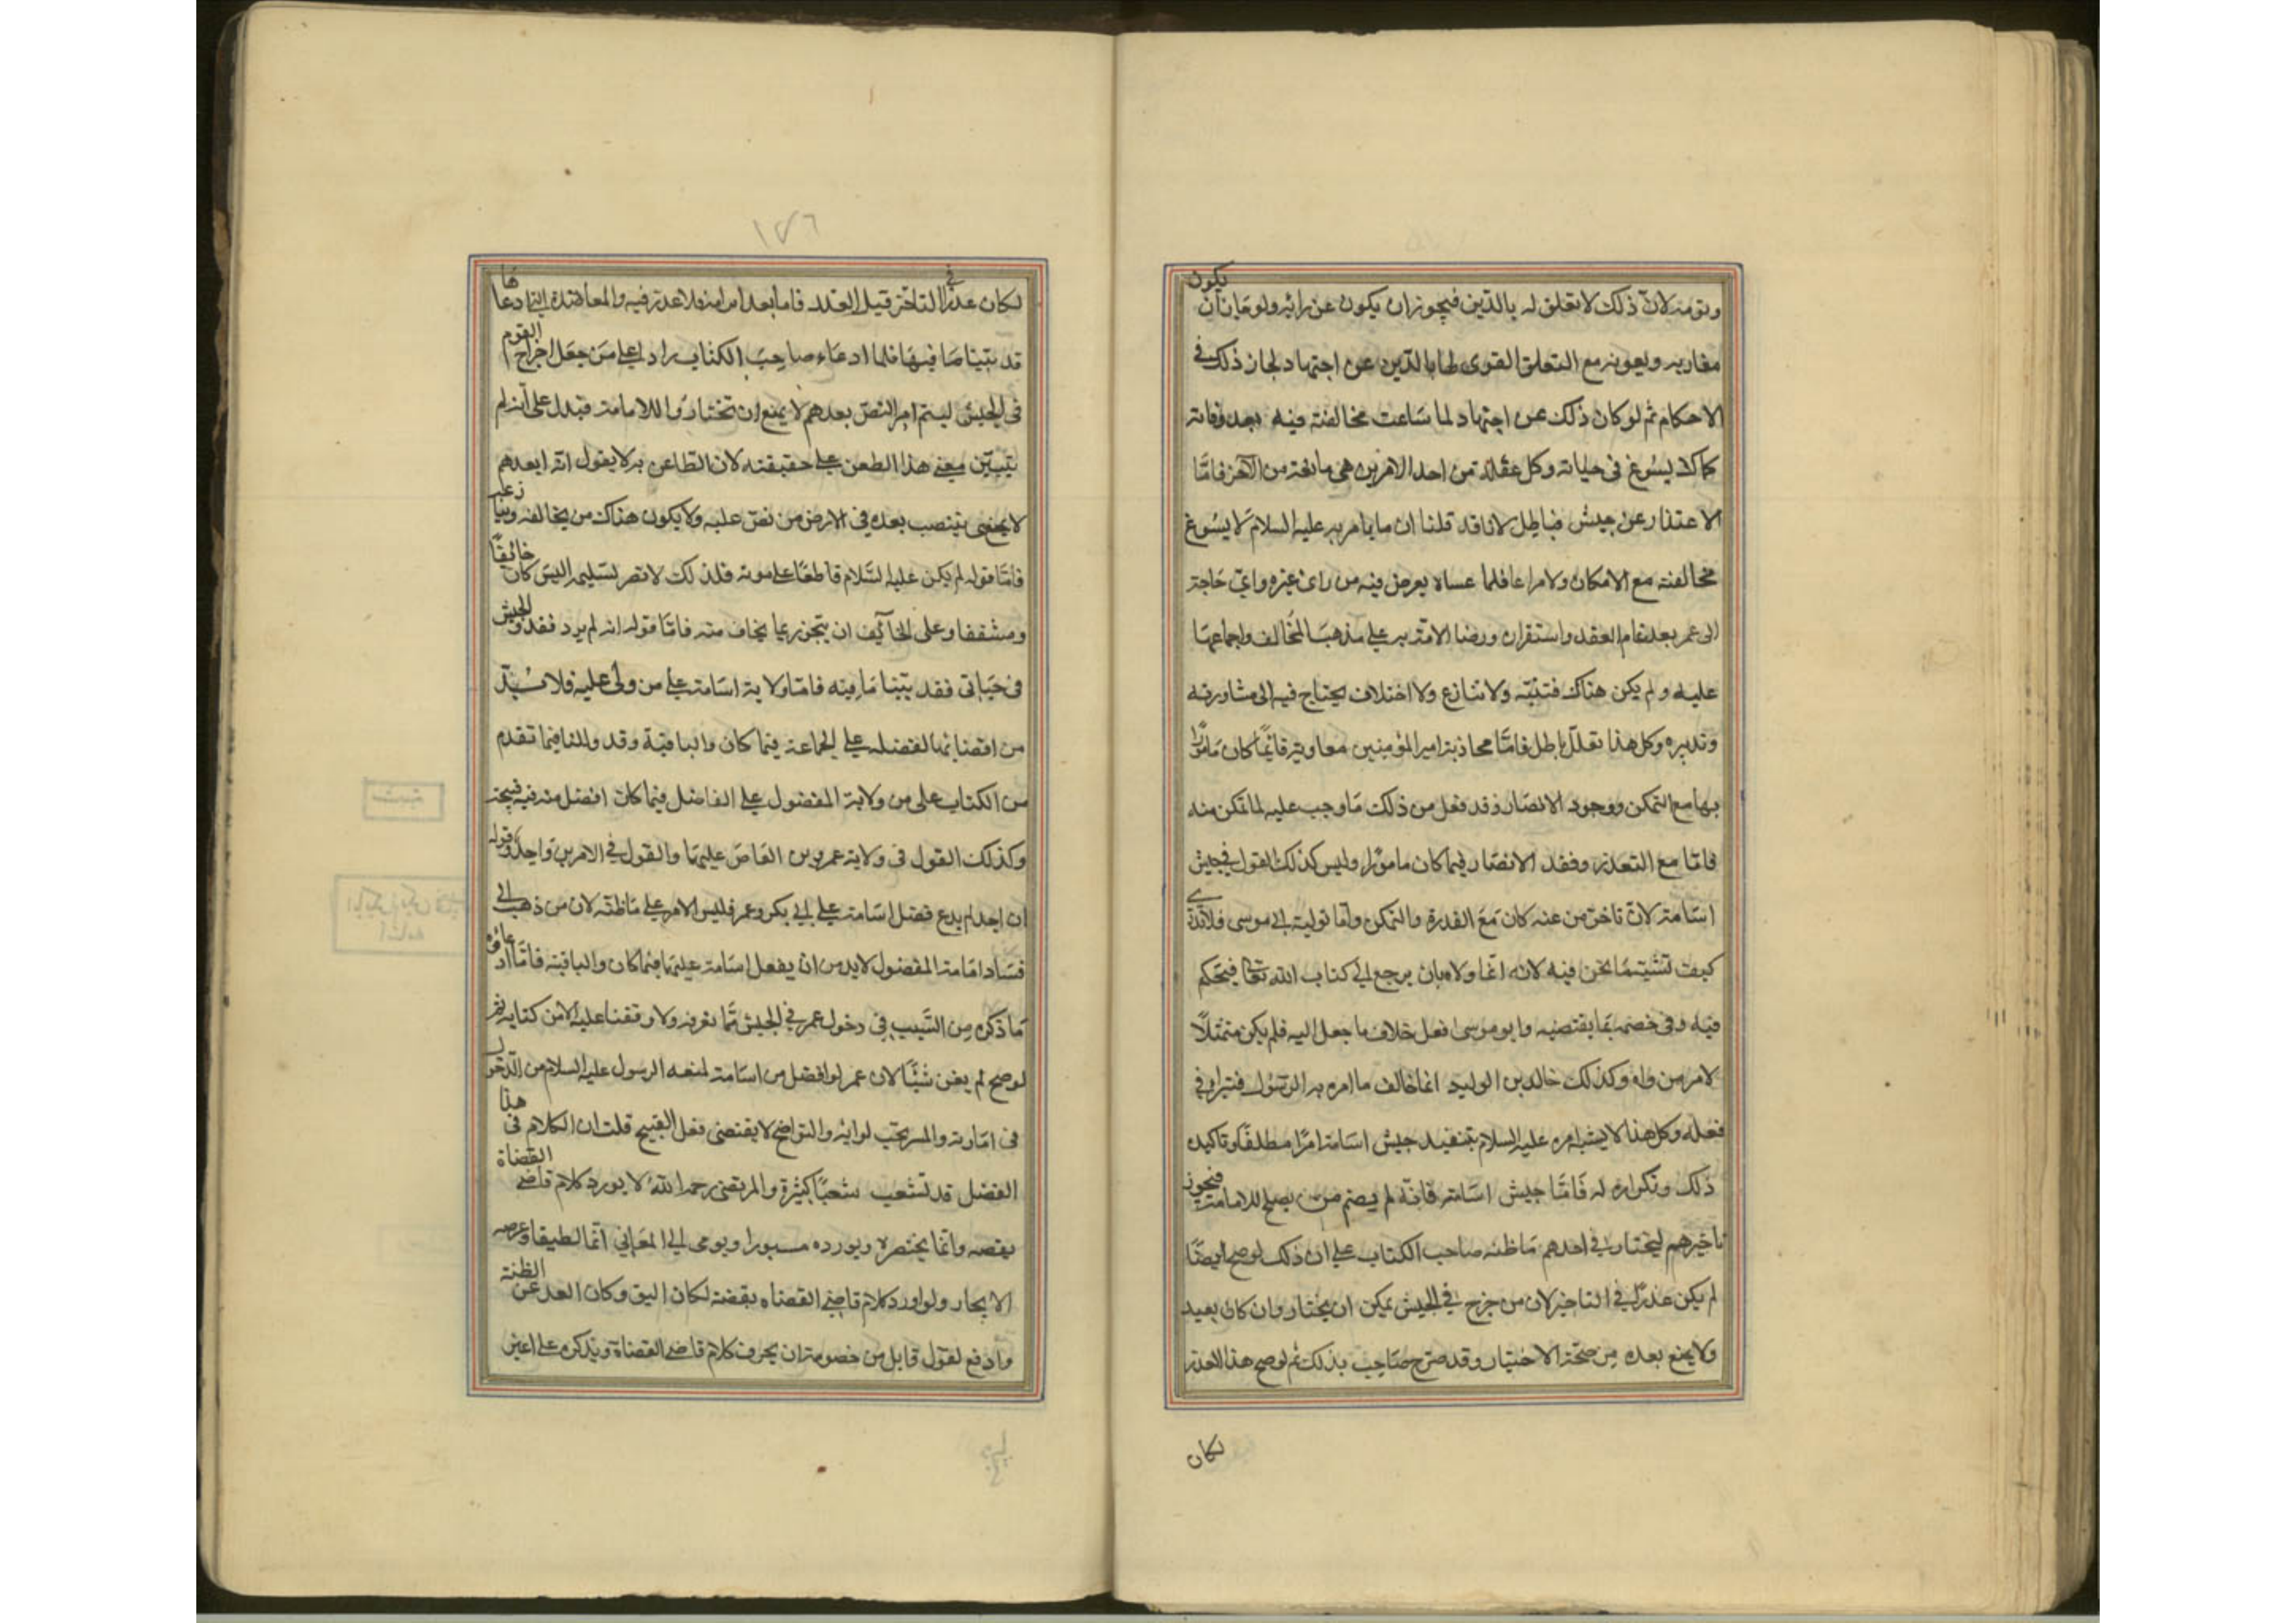 ونومه لان ذلك لا تعلق له بالدين فيجوز ان يكون عن رايه ولو جاز ان يكون
مغازيه وبعوثه مع التعلق القوى لها بالدين عن اجتهاد لجاز ذلك في
الاحكام ثم لو كان ذلك عن اجتهاد لما ساغت مخالفته فيه بعد وفاته
كما لا يسوغ في حياته وكل علة تمنع من احد الامرين هي مانعة من الآخر فامّا
الاعتذار عن جيش فباطل لانا قد قلنا ان ما يامر به عليه السلام لا يسوغ
مخالفته مع الامكان ولا مراعا فلما عساه يعرض فيه من راى غيره واي حاجة
الى عمر بعد تمام العقد واستقراره ورضا الامّة به على مذهب المخالف واجماعها
عليه ولم يكن هناك فتنة ولا تنازع ولا اختلاف يحتاج فيه الى مشاورته
وتدبيره وكل هذا تعلل باطل فامّا محاربة امير المؤمنين معاوية فانما كان مامورًا
بها مع التمكن ووجود الانصار وقد فعل من ذلك ما وجب عليه لما تمكن منه
فامّا مع التعذر وفقد الانصار فما كان مامورًا وليس كذلك القول في جيش
اسامة لان تاخر من عنه كان مع القدرة والتمكن وامّا تولية ابي موسى فلا ندري
كيف تشبيه ما نحن فيه لانه انما ولاه بان يرجع الى كتاب الله تعا فيحكم
فيه وفي خصمه بما يقتضيه وابو موسى فعل خلاف ما جعل اليه فلم يكن ممتثلًا
لامر من ولاه وكذلك خالد بن الوليد انما خالف ما امره به الرسول فتبرا من
فعله وكل هذا لا يشبه امره عليه السلام بتنفيذ جيش اسامة امرًا مطلقًا وتاكيده
ذلك وتكراره له فامّا جيش اسامة فانّه لم يضم من يصلح للامامة فيجوز
تاخيرهم ليختار احدهم ما ظنه صاحب الكتاب على ان ذلك لو صح ايضًا
لم يكن عذرًا في التاخير لان من خرج في الجيش يمكن ان يختار وان كان بعيد
ولا يمنع بعده من صحة الاختيار وقد صرح صاحب بذلك ثم لو صح هذا العذر
لكان
١٧٦
لكان عذرًا في التاخر قبل العقد فاما بعد ابرامه فلا عذر فيه والمعاضدة التي ادعاها
قد بينا ما فيها فاما ادعاء صاحب الكتاب رادا على من جعل اخراج القوم
في الجيش ليتم امر النص بعدهم لا يمنع ان تختاروا للامامة فيدل على انه لم
يتبين معنى هذا الطعن على حقيقته لان الطاعن به لا يقول انه ابعدهم
فامّا قوله لم يكن عليه السلام قاطعًا على موته فذلك لا نضر تسليمه اليس كان خائفًا
ومشفقا وعلى الخائف ان يتحرز مما يخاف منه فامّا قوله انه لم يرد نفذوا الجيش
في حياتي فقد بينا ما فيه فامّا ولاية اسامة على من ولى عليه فلا بد
من اقتضائها لفضله على الجماعة فيما كان واليا فيه وقد دللنا فيما تقدم
من الكتاب على من ولاية المفضول على الفاضل فيما كان افضل منه فيه قبيحة
وكذلك القول في ولاية عمرو بن العاص عليهما والقول في الامرين واحد وقوله
ان احدا لم يدع فضل اسامة على ابي بكر وعمر فليس الامر على ما ظنه لان من ذهب الى
فساد امامة المفضول لا بد من ان يفضل اسامة عليهما فيما كان واليا فيه فامّا ادعائه
ما ذكره من السبب في دخول عمر في الجيش فما نعرفه ولا وقفنا عليه الا من كتابه ثم
لو صح لم يغن شيئًا لان عمر لو افضل من اسامة لمنعه الرسول عليه السلام من الدخول
في امارته والمسير تحت لوائه والتواضع لا يقتضى فعل القبيح قلت ان الكلام في هذا
الفصل قد تشعب شعبًا كثيرة والمرتضى رحمه الله لا يورد كلام قاضي القضاة
بنصه وانما يختصره ويورده مبتورا ويومى الى المعاني ايماءً لطيفا وغرضه
الايجاز ولو اورد كلام قاضي القضاه بنصه لكان اليق وكان ابعد عن الظنة
وادفع لقول قايل من خصومه انه يحرف كلام قاضي القضاة ويذكره على غير